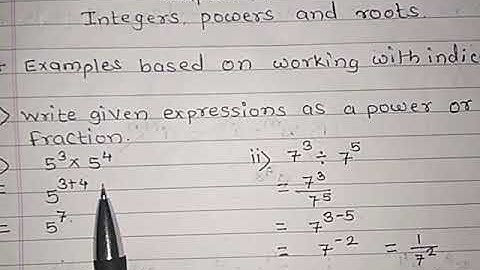 Integers, powers and roots.
Examples based on working with indic
write given expressions as a power or
fraction.
5³ × 5⁴
ii) 7³ ÷ 7⁵
= 5³⁺⁴
= 7³/7⁵
= 5⁷
= 7³⁻⁵
= 7⁻² = 1/7²